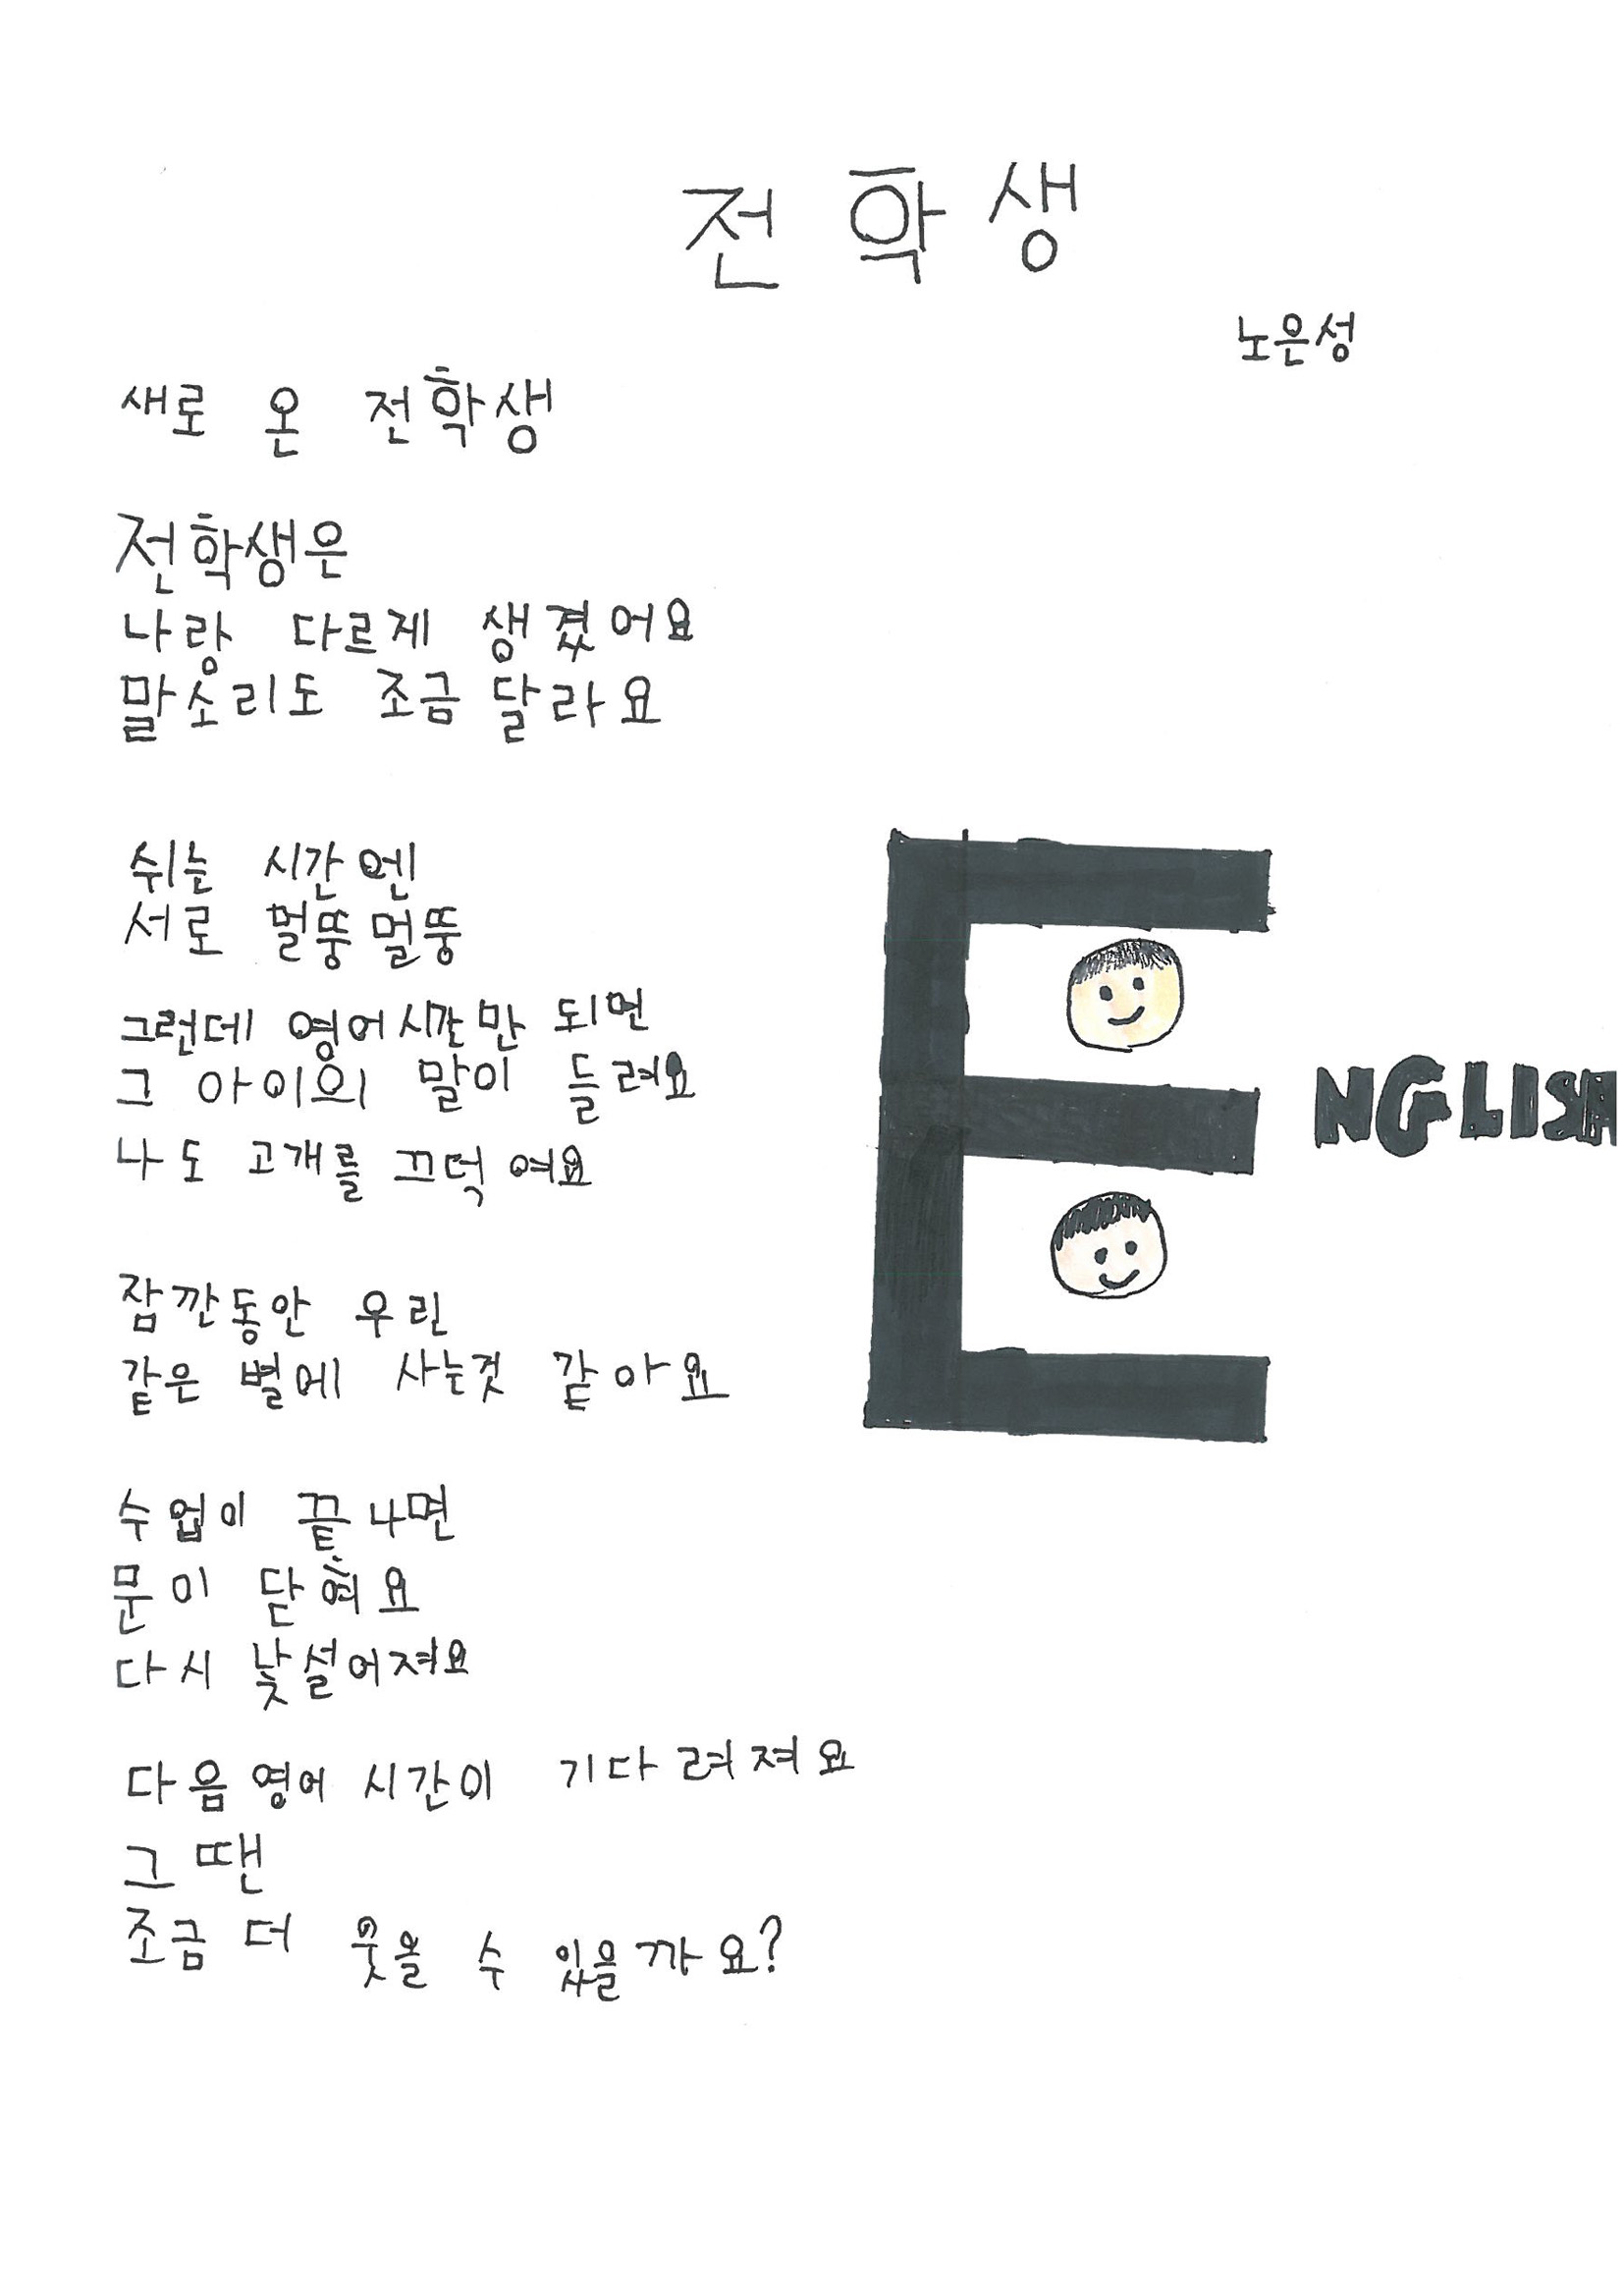 전학생
노은성
새로 온 전학생
전학생은
나랑 다르게 생겼어요
말소리도 조금 달라요
쉬는 시간엔
서로 멀뚱멀뚱
그런데 영어시간만 되면
그 아이의 말이 들려요
나도 고개를 끄덕여요
잠깐동안 우린
같은 별에 사는것 같아요
ENGLISH
수업이 끝나면
문이 닫혀요
다시 낯설어져요
다음 영어 시간이 기다려져요
그땐
조금 더 웃을 수 있을까요?